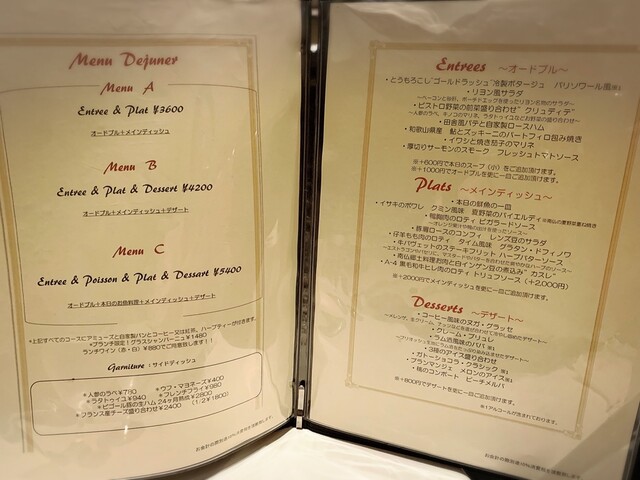 Menu Dejuner
Menu A
Entree & Plat ¥3600
オードブル+メインディッシュ
Menu B
Entree & Plat & Dessert ¥4200
オードブル+メインディッシュ+デザート
Menu C
Entree & Poisson & Plat & Dessart ¥5400
オードブル+本日のお魚料理+メインディッシュ+デザート
*上記すべてのコースにアミューズと自家製パンとコーヒー又は紅茶、ハーブティーが付きます。
*ランチ限定!グラスシャンパーニュ¥1480
ランチワイン(赤・白)¥880でご用意致します!!
Garniture :サイドディッシュ
*人参のラペ¥780 *ウフ・マヨネーズ¥400
*ラタトゥイユ¥940 *フレンチフライ¥980
*ビゴール豚の生ハム 24ヶ月熟成¥2800
*フランス産チーズ盛り合わせ¥2400 (1/2¥1800)
Entrees ~オードブル~
・とうもろこし"ゴールドラッシュ"冷製ポタージュ パリソワール風
・リヨン風サラダ
・ビストロ野菜の前菜盛り合わせ"クリュディテ"
・田舎風パテと自家製ロースハム
・和歌山県産 鮎とズッキーニのパートフィロ包み焼き
・イワシと焼き茄子のマリネ
・厚切りサーモンのスモーク フレッシュトマトソース
※+600円で本日のスープ(小)をご追加頂けます。
※+1000円でオードブルを更に一皿ご追加頂けます。
Plats ~メインディッシュ~
・本日の鮮魚の一皿
・イサキのポワレ クミン風味 夏野菜のバイエルディ
・鴨胸肉のロティ ビガラードソース
・豚肩ロースのコンフィ レンズ豆のサラダ
・仔羊もも肉のロティ タイム風味 グラタン・ドフィノワ
・牛バヴェットのステークフリット ハーブバターソース
・A-4 黒毛和牛ヒレ肉のロティ トリュフソース(+2,000円)
※+2000円でメインディッシュを更に一皿ご追加頂けます。
Desserts ~デザート~
・コーヒー風味のヌガ・グラッセ
・クレーム・ブリュレ
・ラム酒風味のババ ※1
・3種のアイス盛り合わせ
・ガトーショコラ・クラシック ※1
・ブランマンジェ メロンのアイス※1
・桃のコンポート ピーチメルバ
※+800円でデザートを更に一皿ご追加頂けます。
※1アルコールが含まれております。